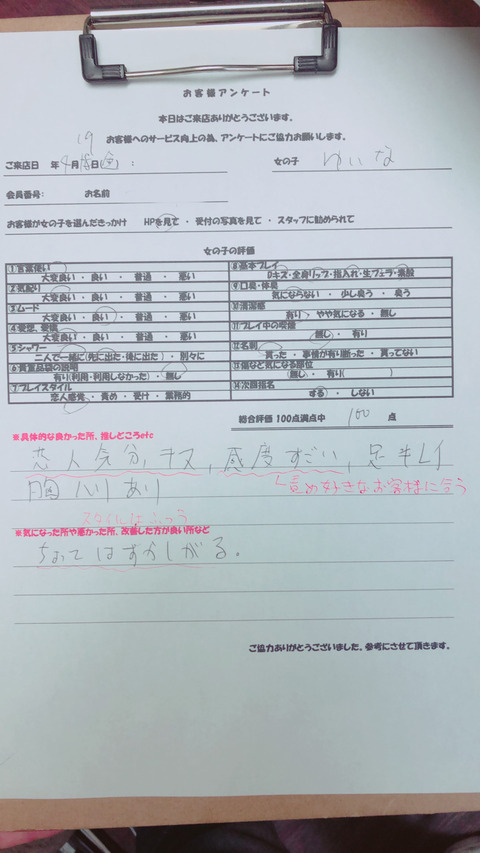 お客様アンケート
本日はご来店ありがとうございます。
19
お客様へのサービス向上の為、アンケートにご協力お願いします。
ご来店日 年 4月 日(金) : 女の子 ゆいな
会員番号: お名前
お客様が女の子を選んだきっかけ HPを見て ・ 受付の写真を見て ・ スタッフに勧められて
女の子の評価
①言葉使い
大変良い ・ 良い ・ 普通 ・ 悪い
②気配り
大変良い ・ 良い ・ 普通 ・ 悪い
③ムード
大変良い ・ 良い ・ 普通 ・ 悪い
④愛想、愛嬌
大変良い ・ 良い ・ 普通 ・ 悪い
⑤シャワー
二人で一緒に(先に出た・後に出た) ・ 別々に
⑥貴重品袋の説明
有り(利用・利用しなかった) ・ 無し
⑦プレイスタイル
恋人感覚 ・ 責め ・ 受け ・ 業務的
⑧基本プレイ
Dキス・全身リップ・指入れ・生フェラ・素股
⑨口臭・体臭
気にならない ・ 少し臭う ・ 臭う
⑩清潔感
有り ・ やや気になる ・ 無し
⑪プレイ中の喫煙
無し ・ 有り
⑫名刺
貰った ・ 事情が有り断った ・ 貰ってない
⑬傷など気になる部位
無し ・ 有り( )
⑭次回指名
する ・ しない
総合評価 100点満点中 100 点
※具体的な良かった所、推しどころetc
恋人気分、キス、感度すごい、足キレイ
胸ハリあり
責め好きなお客様に合う
スタイルはふつう
※気になった所や悪かった所、改善した方が良い所など
ちょっとはずかしがる。
ご協力ありがとうございました。参考にさせて頂きます。